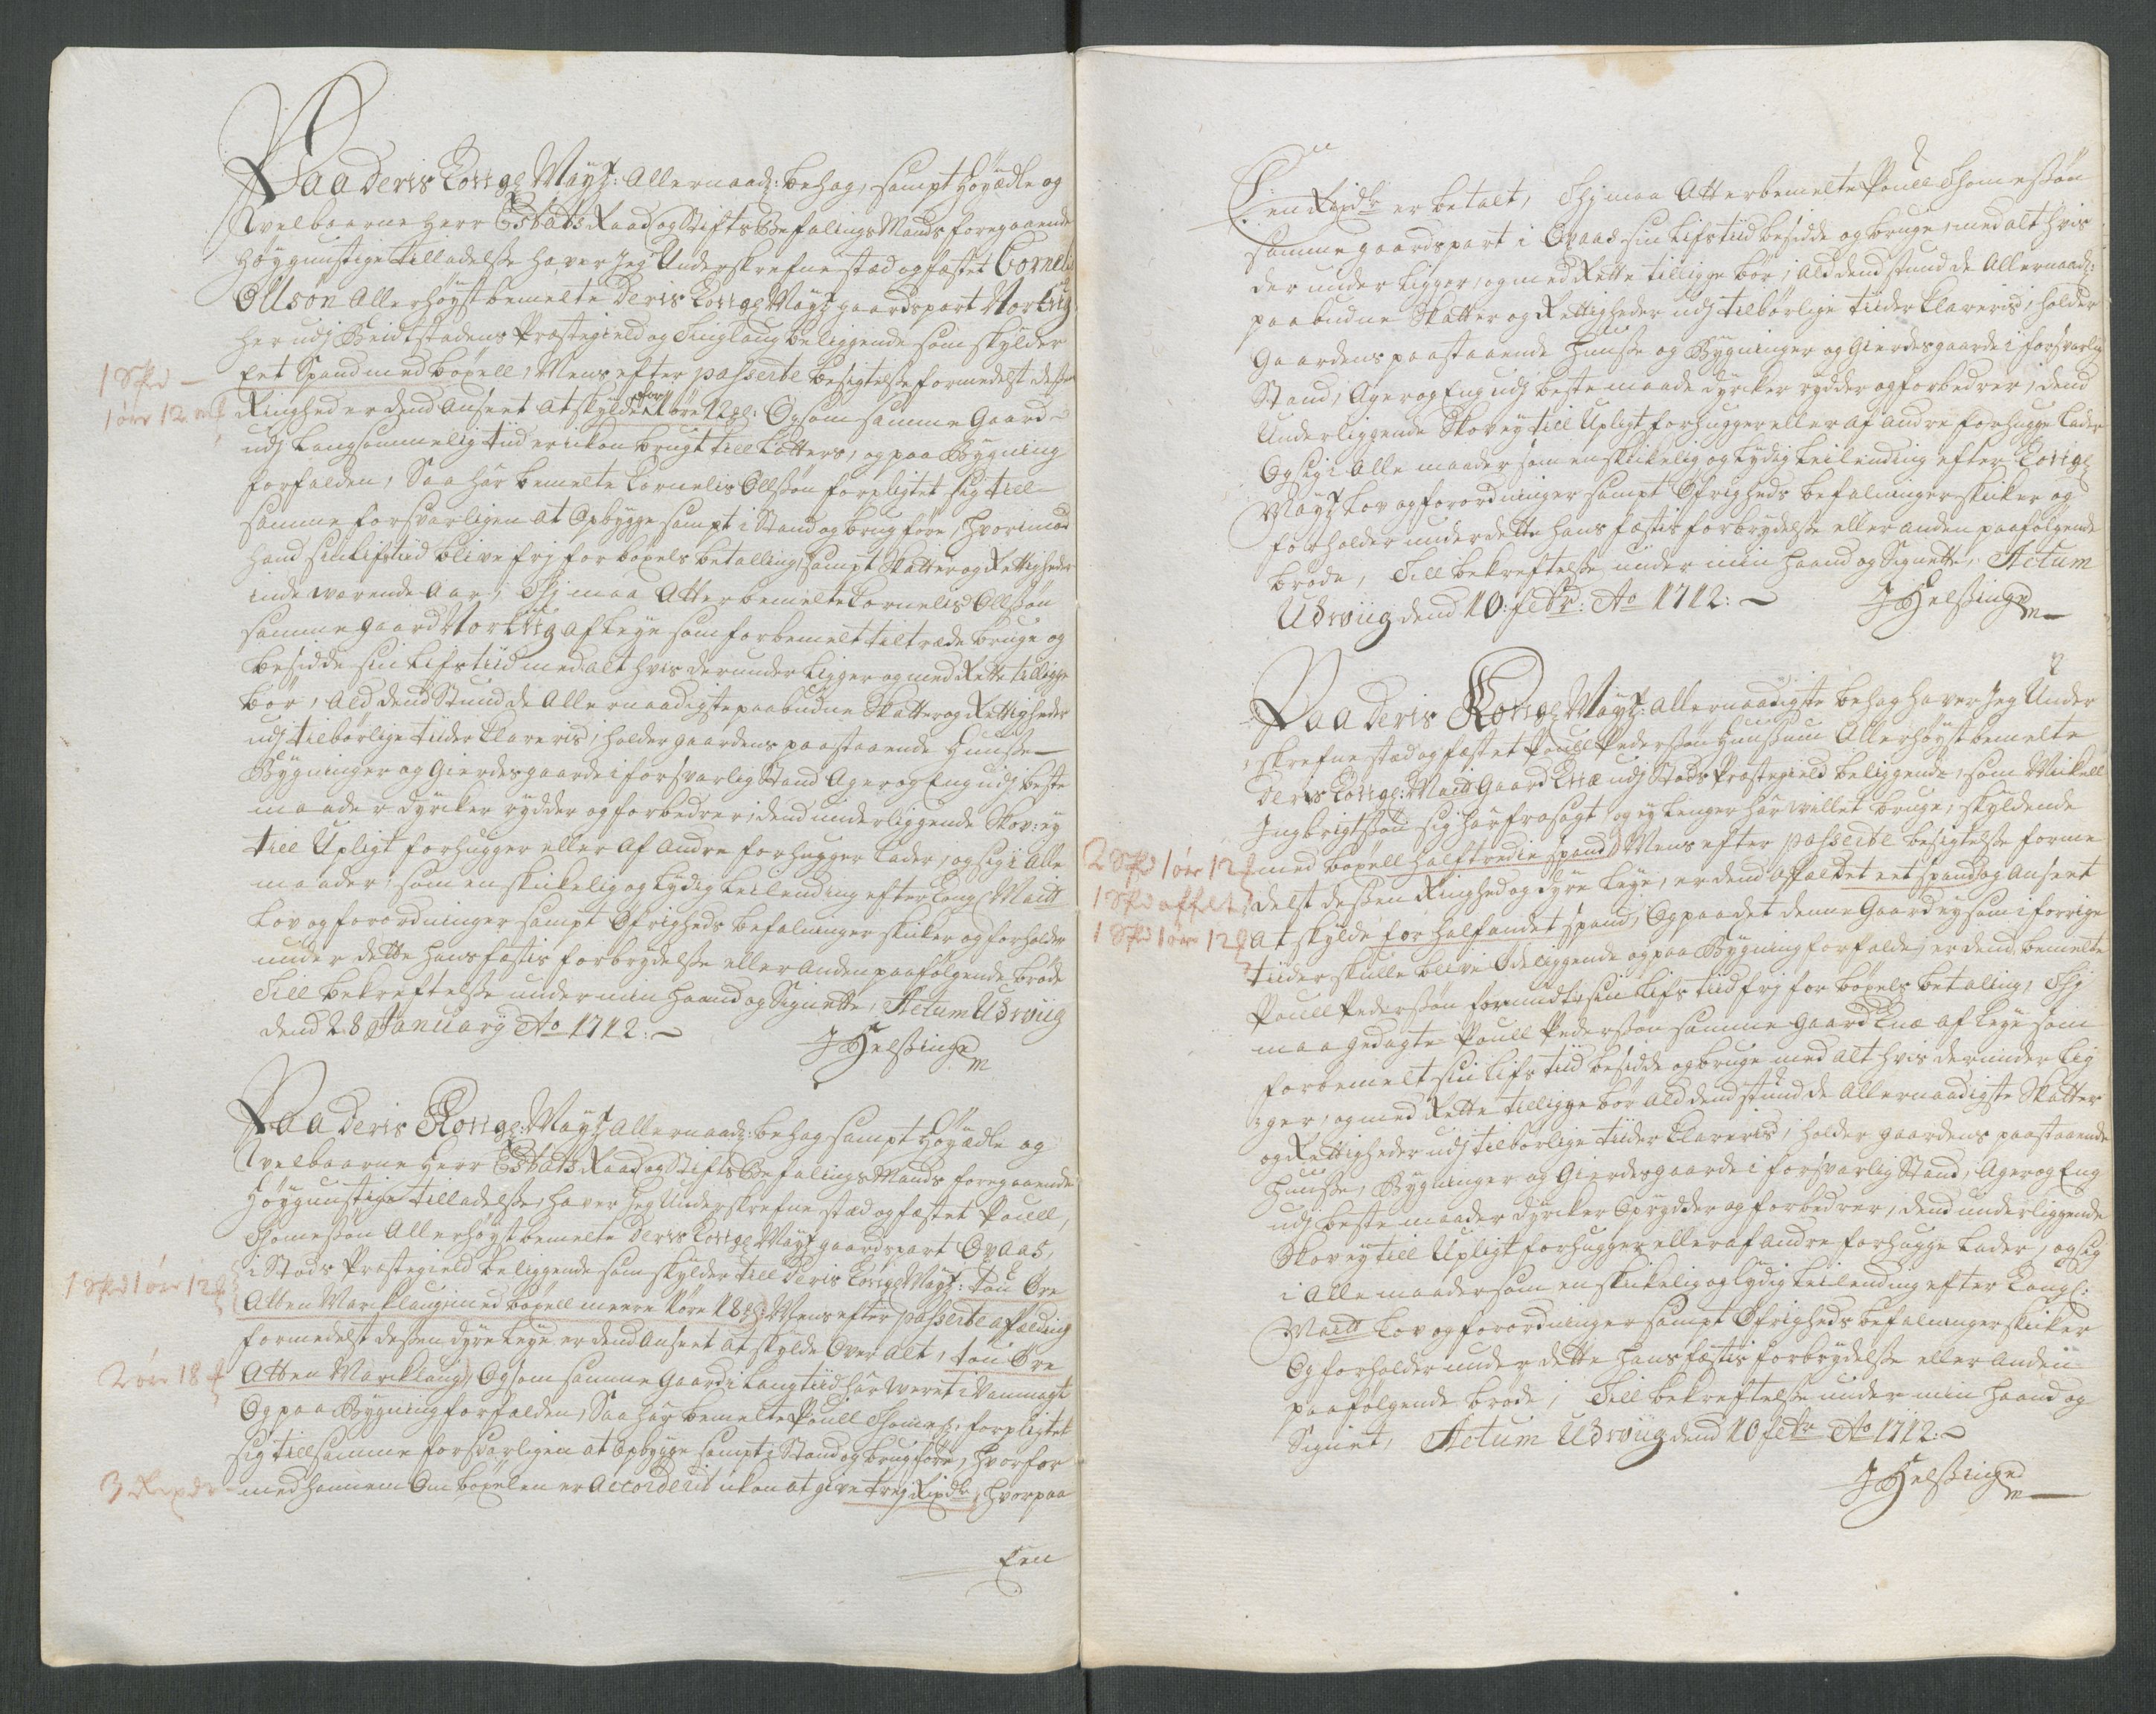 Paa Deris Kongl Mayt: Allernaad: behag, sampt Höyædle og
Welbaarne Herr Estats Raad og Stifts Befalings Mands foregaaende
Höygunstige tilladelsse haver Jeg Underskrefne sted og fæstet Corneli
Ollsön Allerhöystbemelte Deris Kongl Mayt gaardspart Norviig
her udj Beidtstadens Præstegield og Tinglaug beliggende som skylder
1 Spd — Eet Spand med böxell, Mens efter passerte besigtelsse formedelst dessen
1 öre 12 mkl Ringhed er dend Anseet At skylde for 1 öre 12 ml: Og som samme Gaard
udj langsommelig tiid er ickon brugt till Lötters, og paa Bygning
forfalden, Saa har bemelte Cornelis Ollssön forpligtet sig till
samme forsvarligen at Opbygge sampt i Stand og brug före hvorimod
hand sin lifstiid blive frj for böxels betalling, sampt Skatter og Rettigheder
indeværende Aar, Thj maa Atterbemelte Cornelis Ollssön
samme gaard Norviig af leye som forbemelt tiltræde bruge og
besidde sin lifstiid med alt hvis derunder ligger og med Rette tilligge
bör, Ald dend Stund de Allernaadigste paabudne Skatter og Rettigheder
udj tilbörlige tiider klareris, holder gaardens paastaaende Huusse
Bygninger og Gierdesgaarde i forsvarlig Stand Ager og Eng udj beste
maader dyrcker rydder og forbedrer, dend underliggende Skov: ey
till Upligt forhugger eller af andre forhugger lader, og sig i Alle
maader, som en skickelig og lydig leilending efter Kongl Maits
Lov og forordninger sampt Öfrigheds befalninger skicker og forholder
under dette hans fæstis forbrydelsse eller anden paafølgende bröde
Till bekreftelsse under min haand og Signette, Actum Udsviig
dend 28 January Ao 1712:
J Helssing
Paa Deris Kongl: Mayt Allernaad: behag sampt Höyædle og
Welbaarne Herr Estats Raad og Stifts Befalings Mands foregaaende
Höygunstige tilladelsse, haver Jeg Underskrefne sted og fæstet Pouell
Thomessön Allerhöystbemelte Deris Kongl Mayt gaardspart Opaas,
i Stods Præstegield beliggende som skylder till Deris Kongl Mayt: tou Öre
1 Spd 1 öre 12 Atten Marcklaug, med böxell meere 1 öre 18 ml: Mens efter passerte afælding
formedelst dessen dyre leye er dend Anseet At skylde Over Alt, tou Öre
2 öre 18 Atten Marcklaug, Og som samme Gaard i lang tiid har weret i Vanmagt
Og paa Bygning forfalden, Saa har bemelte Pouell Thomess: forpligtet
sig till samme forsvarligen at Opbygge sampt i Stand og brug före, hvorfor
3 Rixdr med hannem Om böxelen er Accorderit ickon at give trej Rixdlr, hvorpaa
Een
Een Rixdlr er betalt, Thj maa Atterbemelte Pouell Thomessön
samme gaardspart i Opaas sin lifstiid besidde og bruge, med alt hvis
der under ligger, og med Rette tilligge bör, Ald dend stund de Allernaad:
paabudne Skatter og Rettigheder udj tilbörlige tiider klareris, holder
Gaardens paastaaende Huusse og Bygninger og Gierdesgaarde i forsvarlig
Stand, Ager og Eng udj beste maade dyrcker rydder og forbedrer, dend
Underliggende Skov ey till Upligt forhugger eller af andre forhugge lader
Og sig i Alle maader som en skickelig og lydig leilending efter Kongl
Mayt Lov og forordninger sampt Öfrigheds befalninger skicker og
forholder under dette hans fæstis forbrydelsse eller anden paafølgende
bröde, Till bekreftelsse under min haand og Signette, Actum
Udsviig dend 10: febr: Ao 1712:
J Helssing
Paa Deris Kongl Mayt: Allernaadigste behag haver Jeg Under
skrefne sted og fæstet Pouell Pederssön Huussum Allerhöystbemelte
Deris Kongl: Maits Gaard udj Stods Præstegield beliggende, som Mickell
Ingbrigtssön sig har frasagt og ey lenger har willet bruge, skyldende
2 Spd 1 öre 12 med böxell halftredie spand Mens efter passerte besigtelsse forme
1 Spd affelt delst dessen Ringhed og dyre leye, er dend affældet eet spand og Anseet
1 Spd 1 öre 12 At skylde for halfandet spand, Og paa det denne Gaard ey som i forrige
tiider skulle blive Ödeliggende og paa Bygning forfalde er dend bemelte
Pouell Pederssön formindte sin lifs tiid frj for böxels betaling, Thj
maa gedagte Pouell Pederssön samme gaard af leye som
forbemelt sin lifs tiid besidde og bruge med alt hvis derunder lig
ger, og med Rette tilligge bör Ald dend stund de Allernaadigste Skatter
og Rettigheder udj tilbörlige tiider klareris, holder gaardens paastaaende
Huusse, Bygninger og Gierdesgaarde i forsvarlig Stand, Ager og Eng
udj beste maader dyrcker Oprydder og forbedrer, dend underliggende
Skov ey till Upligt forhugger eller af andre forhugge lader, og sig
i Alle maader som en skickelig og lydig leilending efter Kongl:
Maits Lov og forordninger sampt Öfrigheds befalninger skicker
Og forholder under dette hans fæstis forbrydelsse eller anden
paafølgende bröde, Till bekreftelsse under min haand og
Signet, Actum Udsviig dend 10 febr Ao 1712:
J Helssing